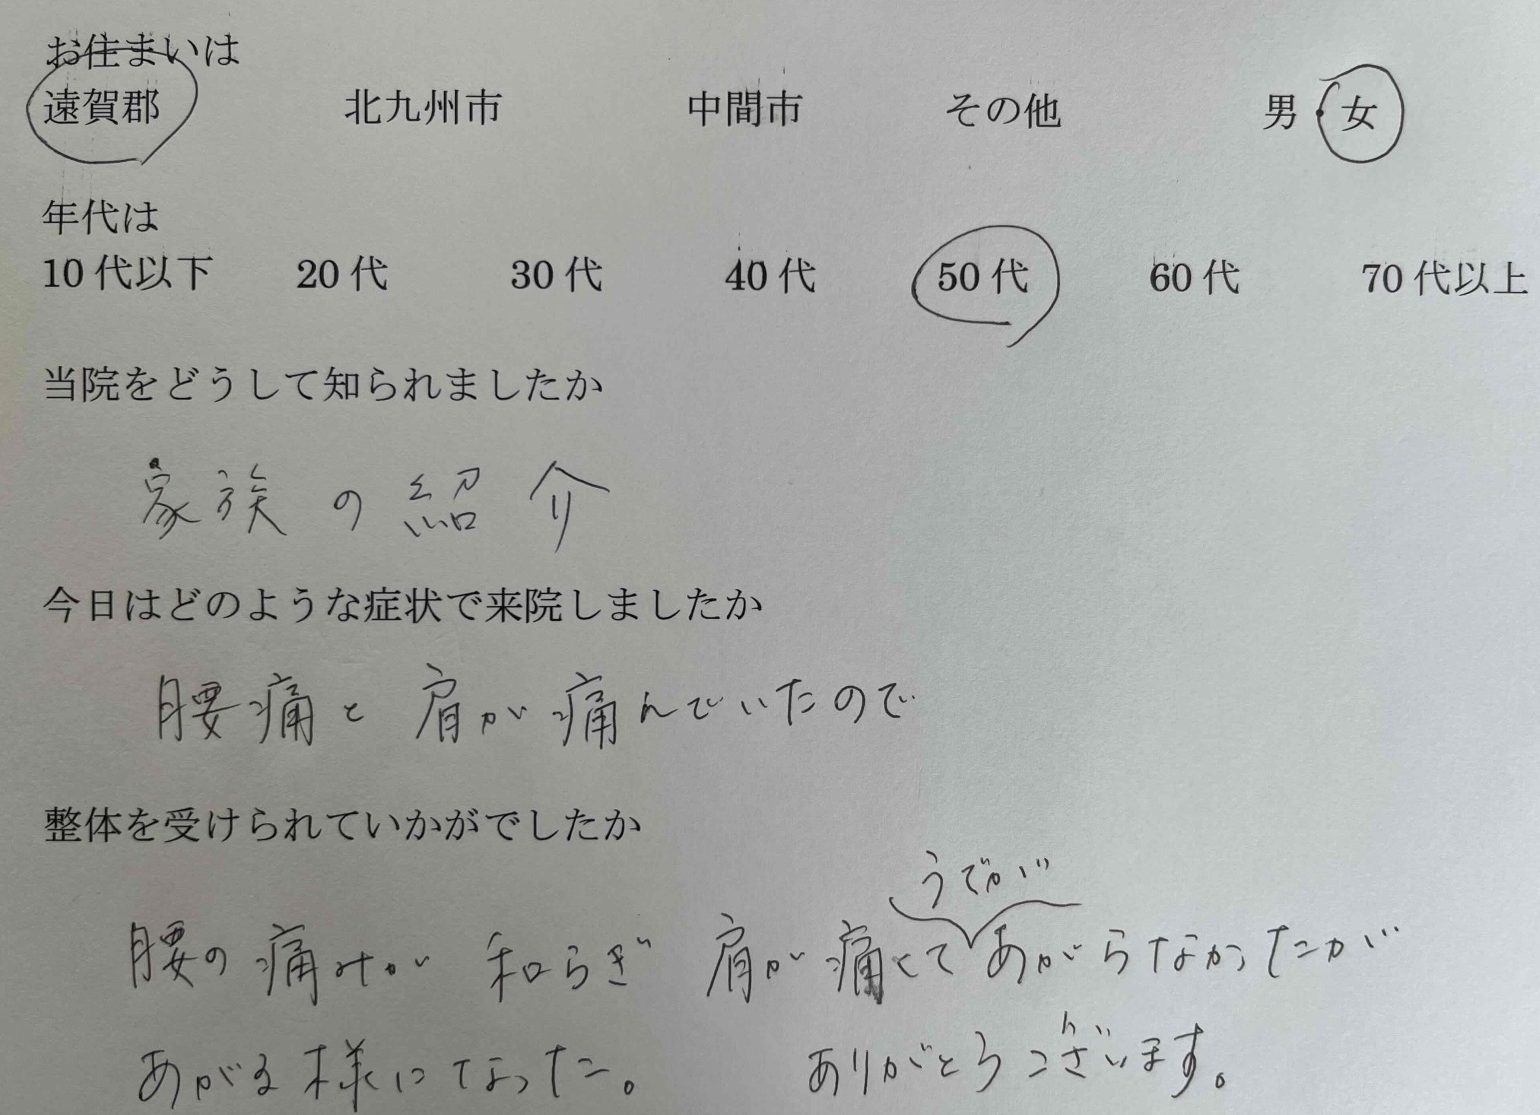 お住まいは
遠賀郡 北九州市 中間市 その他 男・女
年代は
10代以下 20代 30代 40代 50代 60代 70代以上
当院をどうして知られましたか
家族の紹介
今日はどのような症状で来院しましたか
腰痛と肩が痛んでいたので
整体を受けられていかがでしたか
うでが
腰の痛みが和らぎ 肩が痛くてあがらなかったが
あがる様になった。 ありがとうございます。